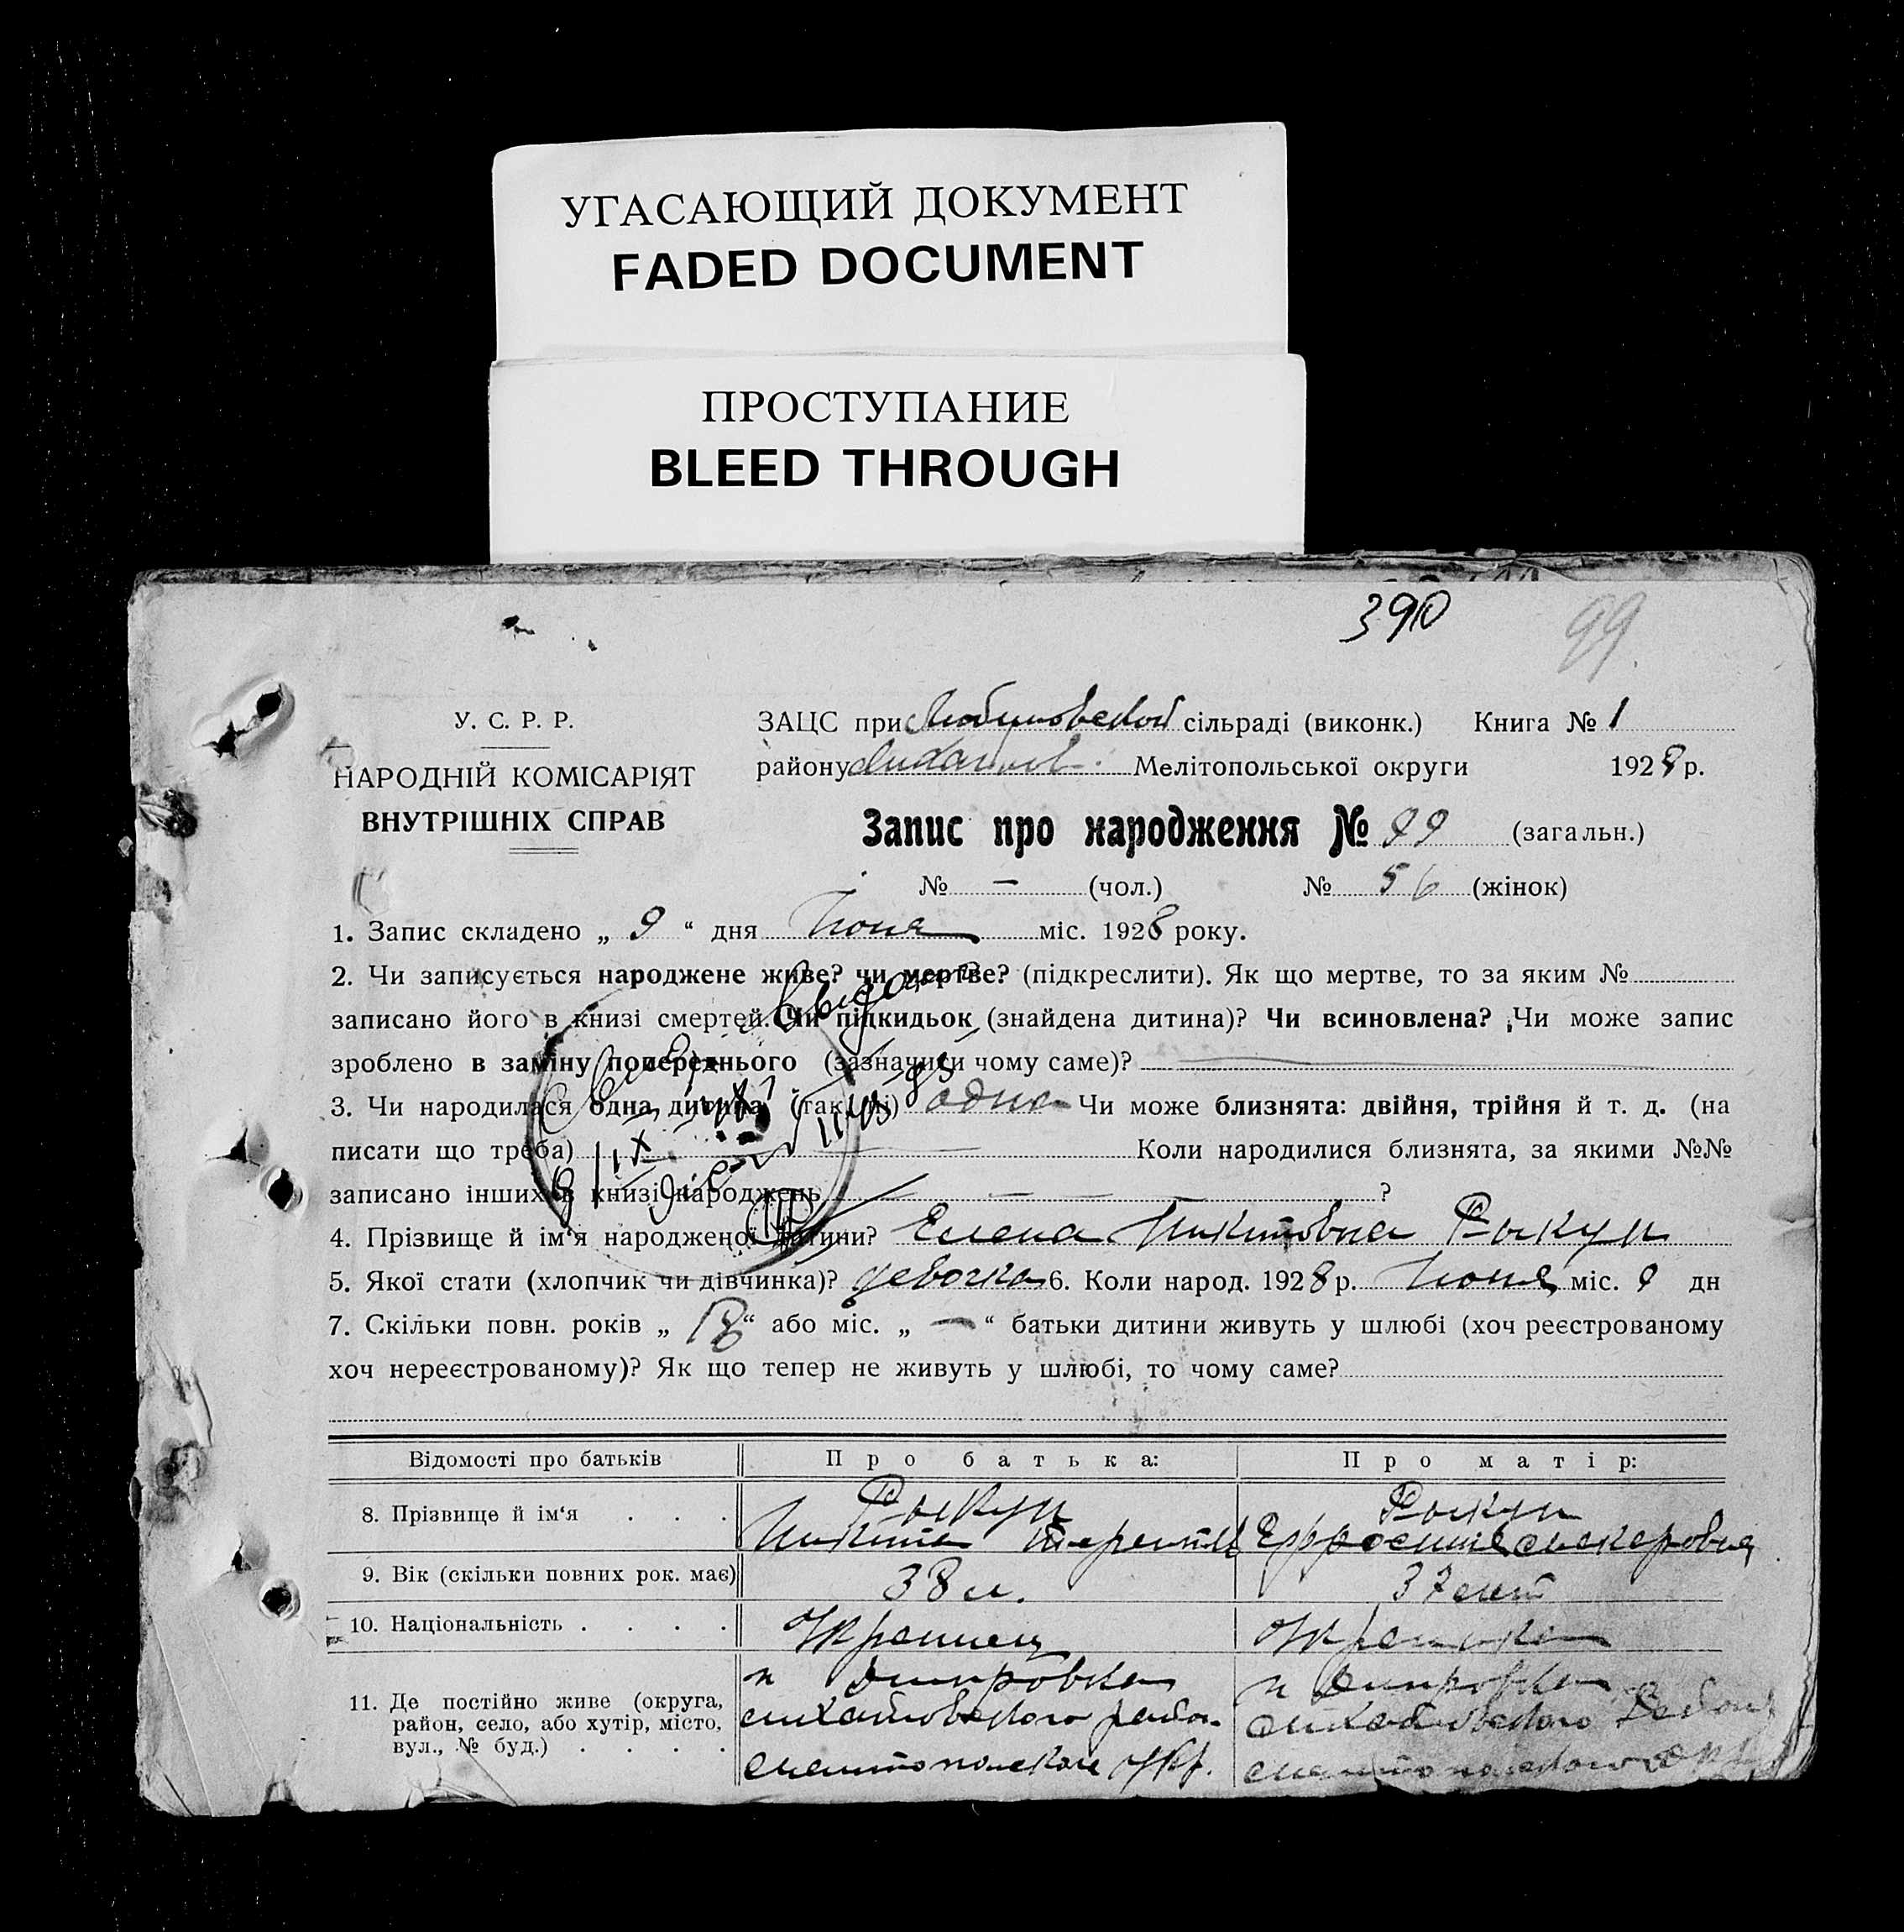 УГАСАЮЩИЙ ДОКУМЕНТ
FADED DOCUMENT
ПРОСТУПАНИЕ
BLEED THROUGH
390
99
У. С. Р. Р.
НАРОДНІЙ КОМІСАРІЯТ
ВНУТРІШНІХ СПРАВ
ЗАЦС при сільраді (виконк.) Книга № 1
району Мелітопольської округи 1928 р.
Запис про народження № 99 (загальн.)
№ — (чол.) № 56 (жінок)
1. Запис складено „ 9 “ дня Июня міс. 1928 року.
2. Чи записується народжене живе? чи мертве? (підкреслити). Як що мертве, то за яким №
записано його в книзі смертей. Чи підкидьок (знайдена дитина)? Чи всиновлена? Чи може запис
зроблено в заміну попереднього (зазначити чому саме)?
3. Чи народилася одна дитина? (так, ні) одна Чи може близнята: двійня, трійня й т. д. (на
писати що треба) Коли народилися близнята, за якими №№
записано інших в книзі народжень ?
4. Прізвище й ім‘я народженої дитини? Елена Никитовна Рыкун
5. Якої стати (хлопчик чи дівчинка)? девочка 6. Коли народ. 1928 р. Июня міс. 9 дн
7. Скільки повн. років „ 18 “ або міс. „ — “ батьки дитини живуть у шлюбі (хоч реєстрованому
хоч нереєстрованому)? Як що тепер не живуть у шлюбі, то чому саме?
Відомості про батьків Про батька: Про матір:
8. Прізвище й ім‘я . . . Рыкун Никита Терентів Рыкун Ефросиния Макаровна
9. Вік (скільки повних рок. має) 38 л. 37 лет
10. Національність . . . . Украинец Украинка
11. Де постійно живе (округа,
район, село, або хутір, місто,
вул., № буд.) . . . .
п Днипровка
района
Мелитопольской Окр.
п Днипровка